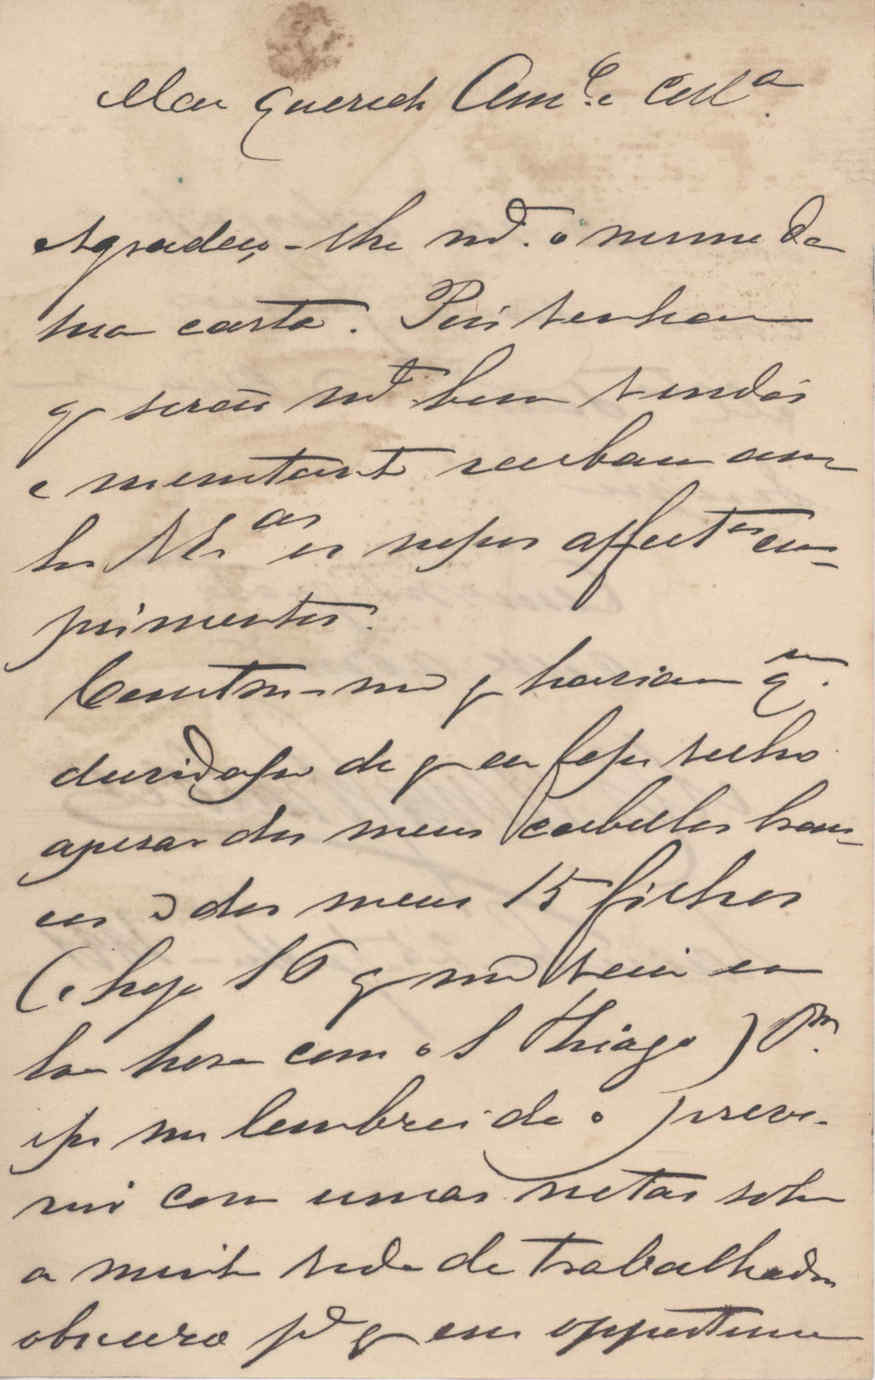 Meu querido Amº e Collª.
Agradeço-lhe mtº. o nume da
sua carta. Pois venham
q serão mtº bem vindos
e recebam am
bos Mᶜas os nossos affectᵒˢ cum-
primentos.
Constou-me q havia qm.
duvidasse de q eu fosse velho
apesar dos meus cabellos bran-
cos e dos meus 15 filhos
(e hoje 16 q me veiu em
boa hora com o S Thiago) Pr.
isso me lembrei de o preve-
nir com umas notas sobre
a minha vida de trabalhador
obscuro pª q em opportuna